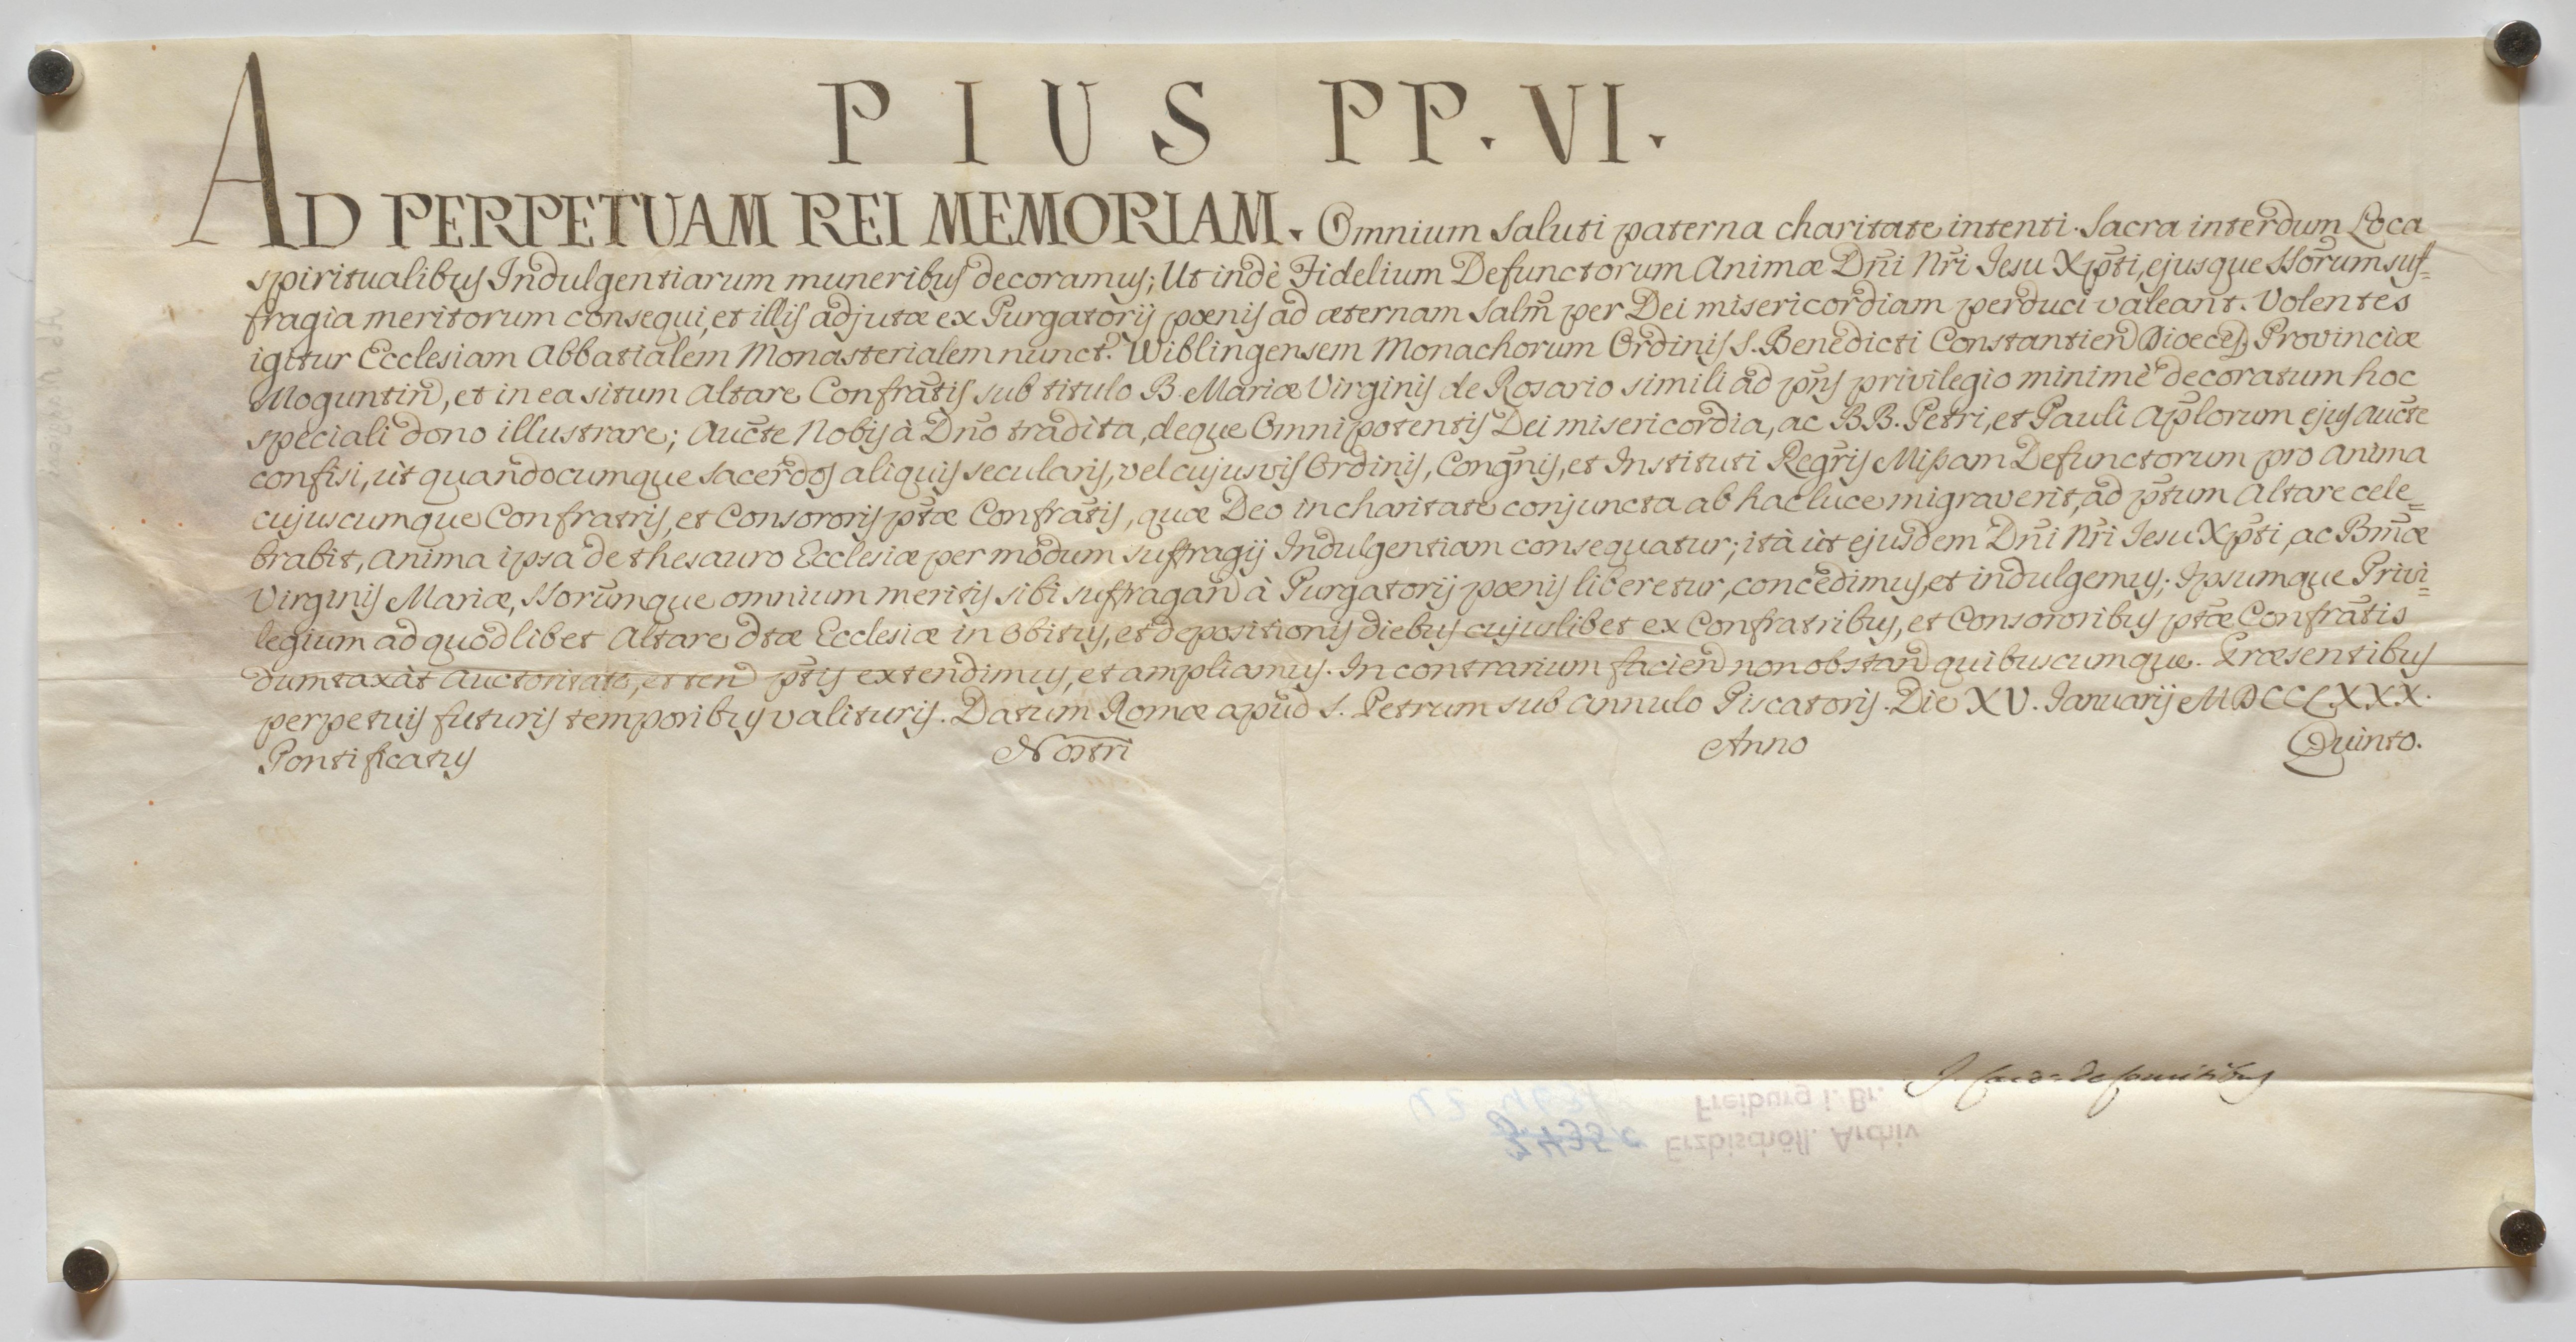 PIUS PP. VI.
AD PERPETUAM REI MEMORIAM. Omnium Saluti paterna charitate intenti. Sacra interdum Loca
spiritualibus Indulgentiarum muneribus decoramus; Ut indè Fidelium Defunctorum Animæ Dñi Nr̃i Iesu Xp̃ti, ejusque SSorũm suf=
fragia meritorum consequi, et illis adjutæ ex Purgatorij pœnis ad æternam Salm̃ per Dei misericordiam perduci valeant. Volentes
igitur Ecclesiam Abbatialem Monasterialem nunct. Wiblingensem Monachorum Ordinis S. Benedicti Constantien̄ Dioeces, Provinciæ
Moguntin̄, et in ea situm Altare Confrat̃is sub titulo B. Mariæ Virginis de Rosario simili ad pñs privilegio minimè decoratum hoc
speciali dono illustrare; Auct̃e Nobis à Dño tradita, deque Omnipotentis Dei misericordia, ac BB. Petri, et Pauli Ap̃lorum ejus auct̃e
confisi, ùt quandocumque Sacerdos aliquis secularis, vel cujusvis Ordinis, Congñis, et Instituti Regr̃is Missam Defunctorum pro anima
cujuscumque Confratris, et Consororis pt̃æ Confrat̃is, quæ Deo in charitate conjuncta ab hac luce migraverit, ad pt̃um Altare cele=
brabit, anima ipsa de thesauro Ecclesiæ per modum suffragij Indulgentiam consequatur; ità ùt ejusdem Dñi Nr̃i Iesu Xp̃ti, ac Bm̃æ
Virginis Mariæ, SSorũmque omnium meritis sibi suffragan̄ à Purgatorij pœnis liberetur, concedimus, et indulgemus; Ipsumque Privi=
legium ad quodlibet Altare dtæ Ecclesiæ in Obitus, et depositionis diebus cujuslibet ex Confratribus, et Consororibus pt̃æ Confrat̃is
dumtaxàt auctoritate, et ten̄ pt̃is extendimus, et ampliamus. In contrarium facien̄ non obstan̄ quibuscumque. Præsentibus
perpetuis futuris temporibus valituris. Datum Romæ apud S. Petrum sub Annulo Piscatoris. Die XV. Ianuarij MDCCLXXX.
Pontificatus Nostri Anno Quinto.
Freiburg i. Br.
Erzbischöfl. Archiv